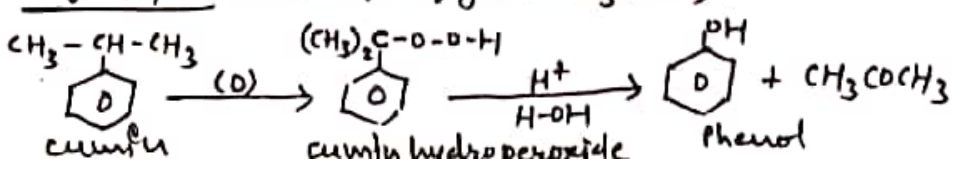 CH₃ - CH - CH₃ (CH₃)₂C-O-O-H OH
(O) H⁺ + CH₃COCH₃
H-OH
cumin cumin hydroperoxide Phenol